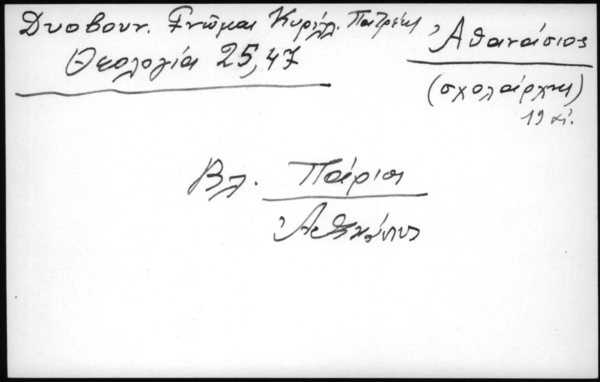 Δυοβουν. Γνῶμαι Κυρίλ. Πατριάρ
Θεολογία 25,47
Ἀθανάσιος
(σχολάρχης)
19 αἰ.
Βλ. Πάριος
Ἀθανάσιος